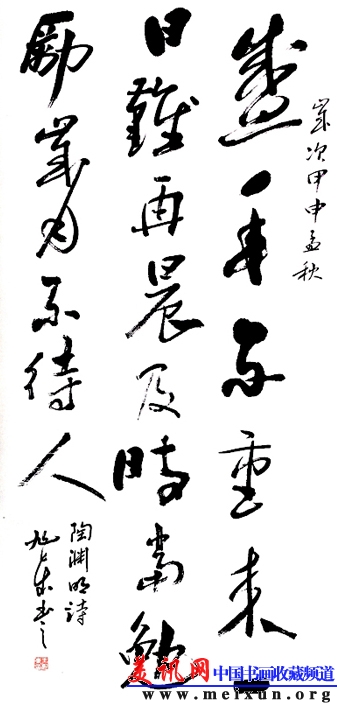 歲次甲申孟秋
盛年不重来一
日難再晨及時當勉
勵歲月不待人
陶淵明詩
书之
美讯网 中国书画收藏频道
www.meixun.org